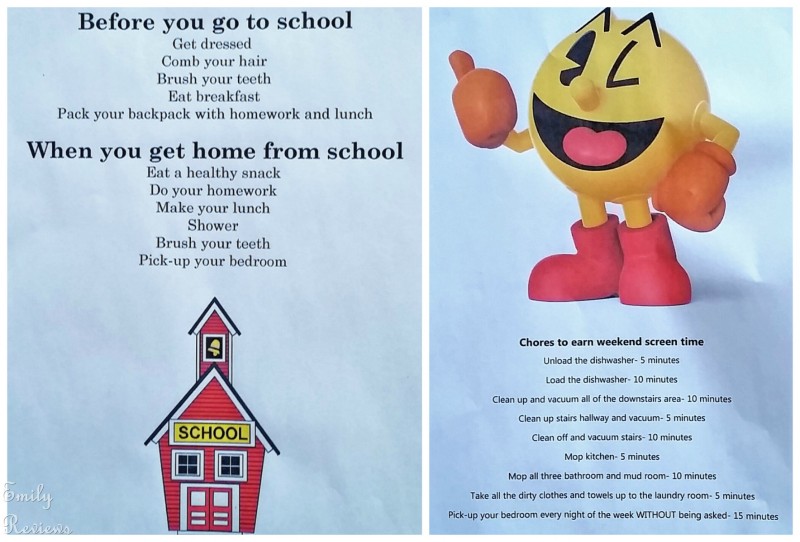 Before you go to school
Get dressed
Comb your hair
Brush your teeth
Eat breakfast
Pack your backpack with homework and lunch
When you get home from school
Eat a healthy snack
Do your homework
Make your lunch
Shower
Brush your teeth
Pick-up your bedroom
SCHOOL
Emily
Reviews
Chores to earn weekend screen time
Unload the dishwasher- 5 minutes
Load the dishwasher- 10 minutes
Clean up and vacuum all of the downstairs area- 10 minutes
Clean up stairs hallway and vacuum- 5 minutes
Clean off and vacuum stairs- 10 minutes
Mop kitchen- 5 minutes
Mop all three bathroom and mud room- 10 minutes
Take all the dirty clothes and towels up to the laundry room- 5 minutes
Pick-up your bedroom every night of the week WITHOUT being asked- 15 minutes